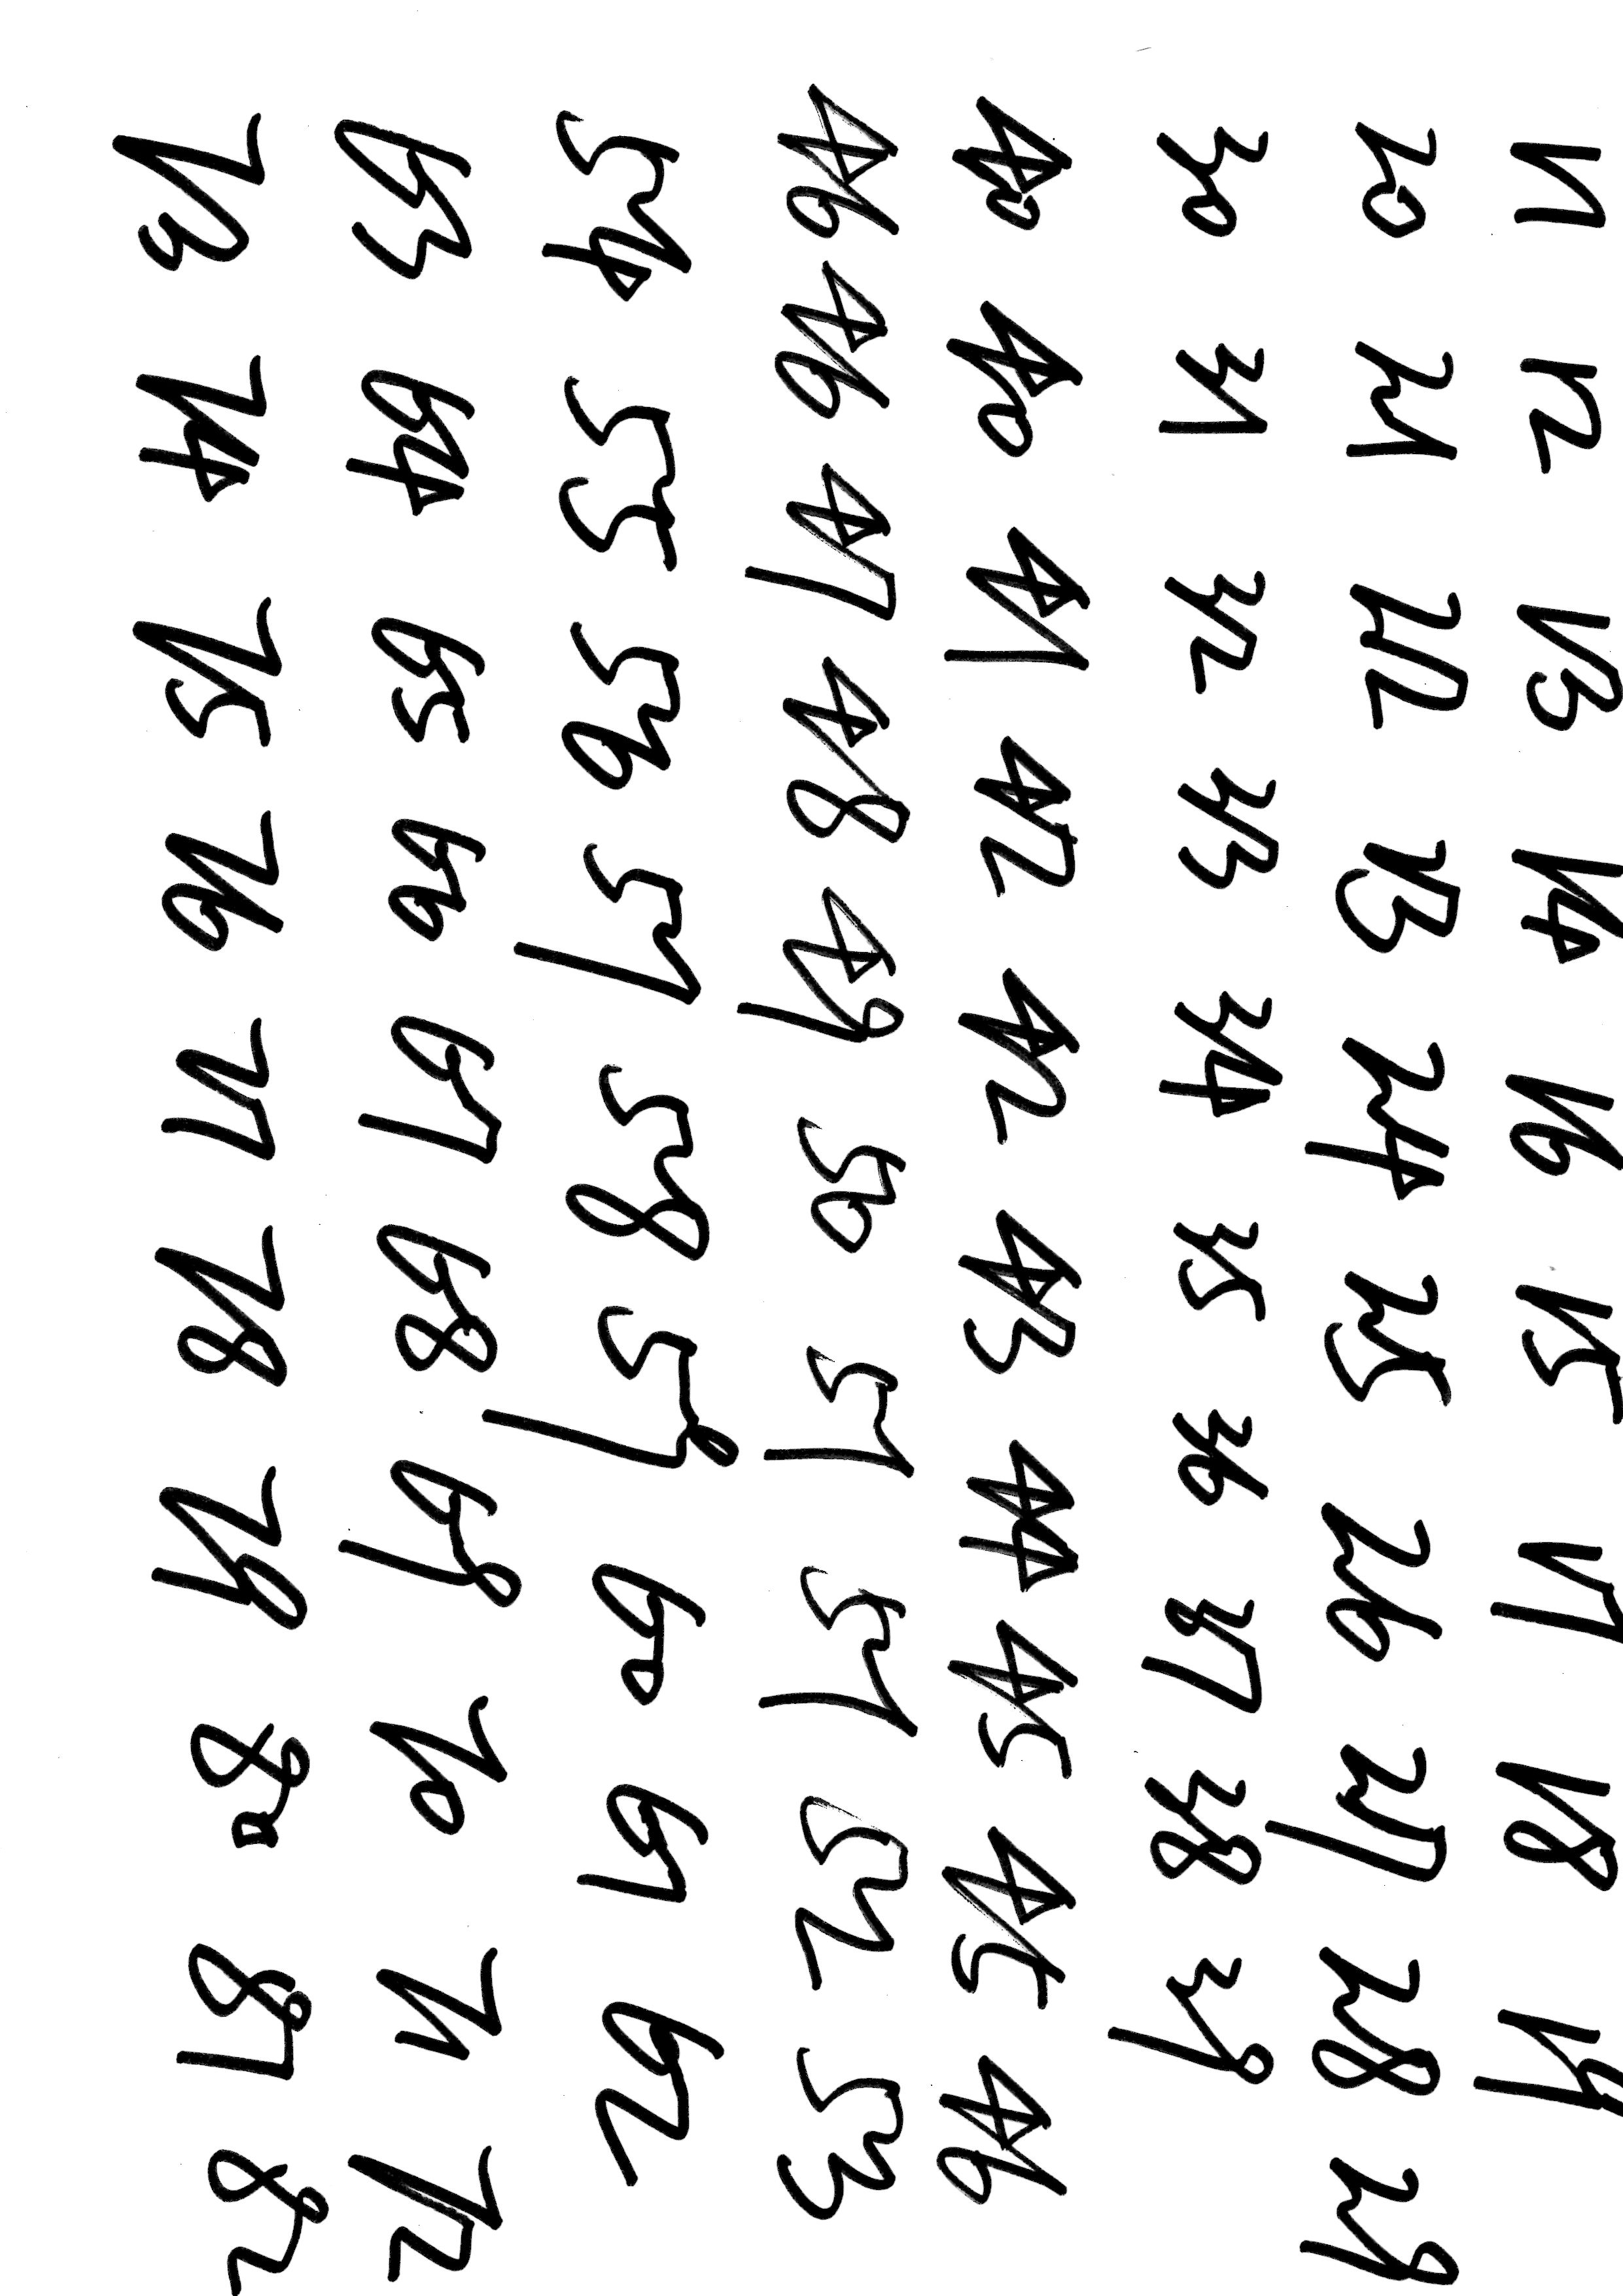 11 12 13 14 16 15 17 18 19
20 21 22 13 24 25 26 27 28 29
30 31 32 33 34 35 36 37 38 39
40 40 41 42 42 43 44 45 45 46
46 46 47 48 49 50 51 51 52 53
54 55 56 57 58 59 60 61 62
63 64 65 66 67 68 69 70 71 72
73 74 75 76 77 78 79 80 81 82